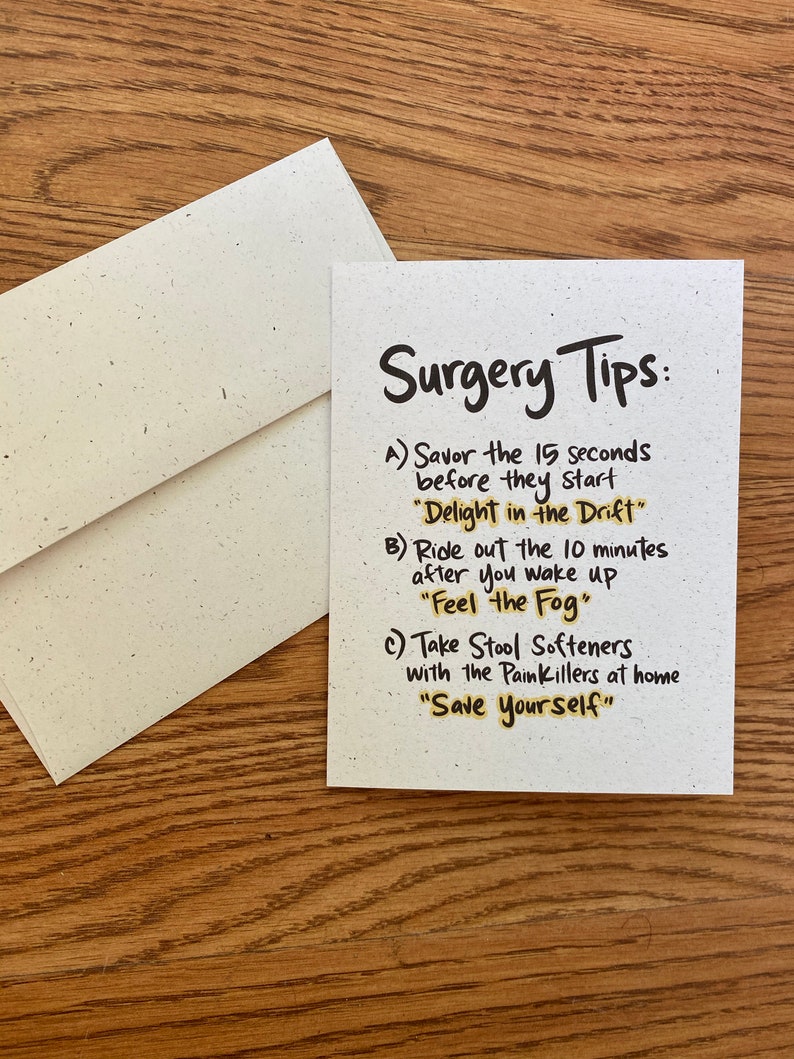 Surgery Tips:
A) Savor the 15 seconds
before they start
"Delight in the Drift"
B) Ride out the 10 minutes
after you wake up
"Feel the Fog"
C) Take Stool Softeners
with the Painkillers at home
"Save Yourself"